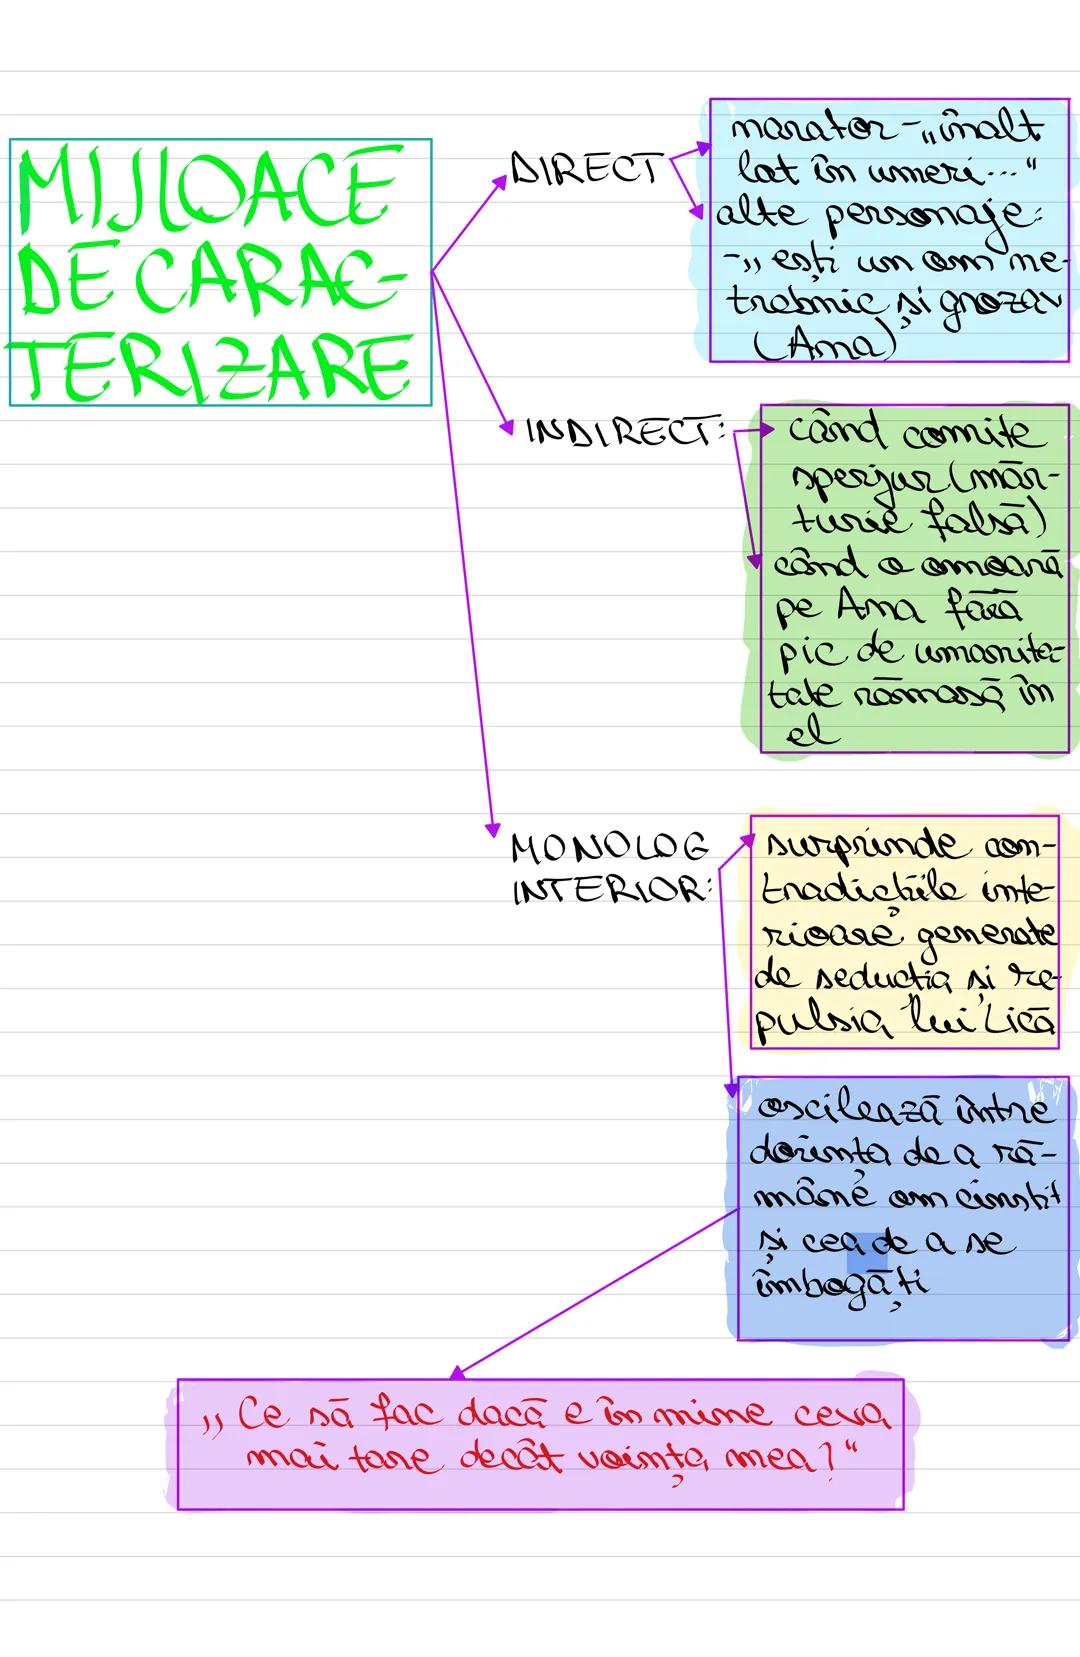 MIJLOACE
DE CARAC-
TERIZARE
DIRECT
narator-„înalt
lat în umeri..."
alte personaje:
-„ești un om ne-
trebnic și grozav
(Ana)
INDIRECT:
când comite
sperjur (măr-
turie falsă)
când o omoară
pe Ana fără
pic de umanita-
tate rămasă în
el
MONOLOG
INTERIOR:
surprinde con-
tradicțiile inte-
rioare generate
de seducția și re-
pulsia lui Lică
oscilează între
dorința de a ră-
mâne om cinstit
și cea de a se
îmbogăți
„Ce să fac dacă e în mine ceva
mai tare decât voința mea?"